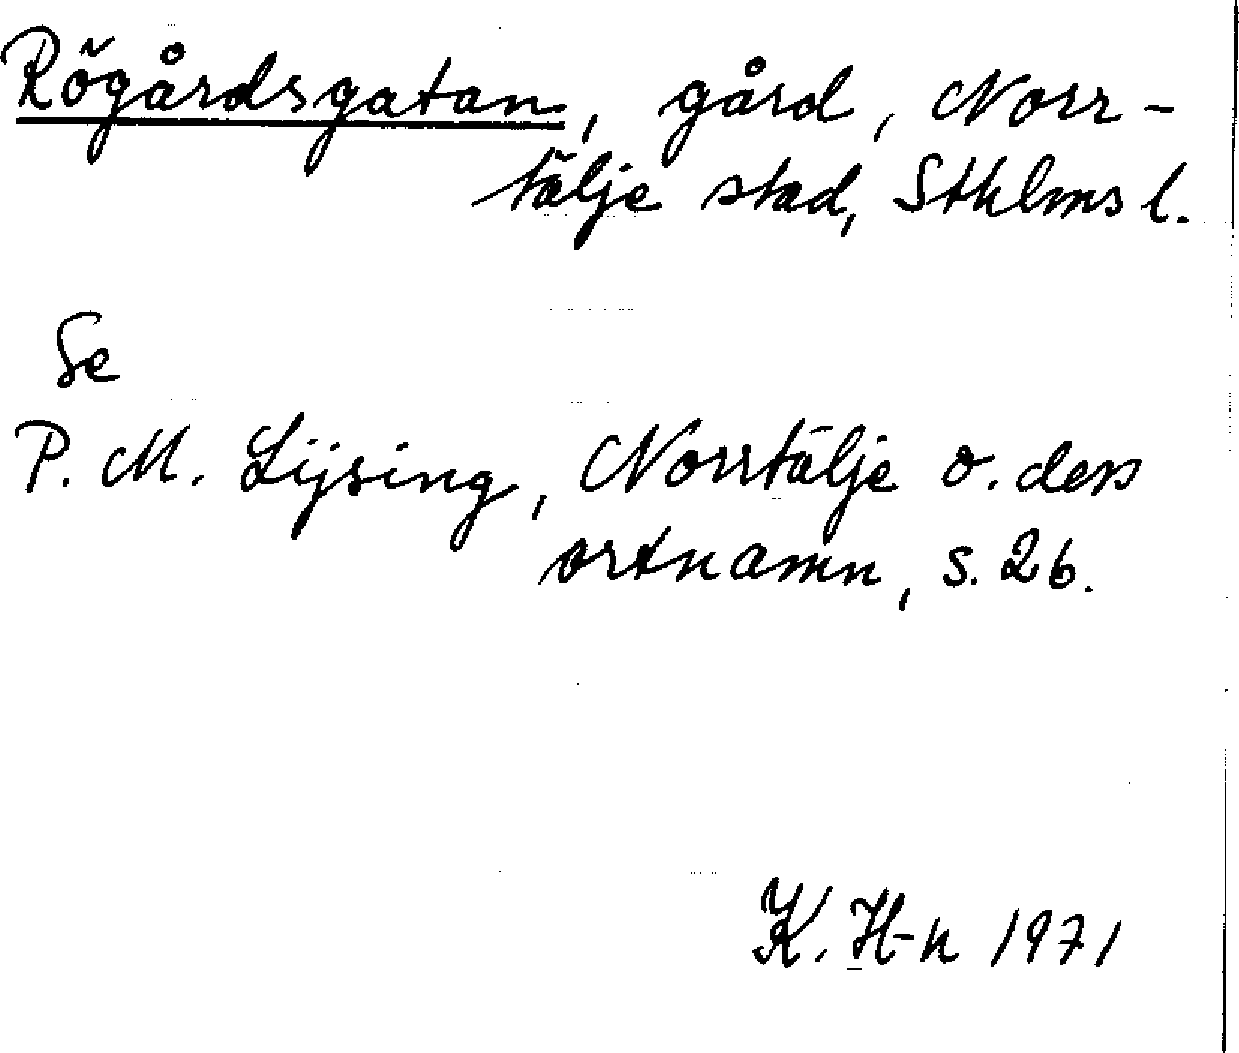 Rögårdsgatan, gård, Norr-
tälje stad, Sthlms l.
Se
P. M. Lijsing, Norrtälje o. dess
ortnamn, s. 26.
K. H-n 1971